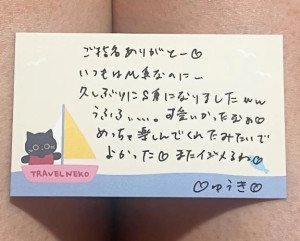 ご指名ありがとー♡
いつもはM系なのにー
久しぶりにS育になりましたww
うふふ、、、。可愛いかったなぁ♡
めっちゃ楽しんでくれたみたいで
よかった♡ またイジメるね♡
♡ゆうき♡
TRAVEL NEKO